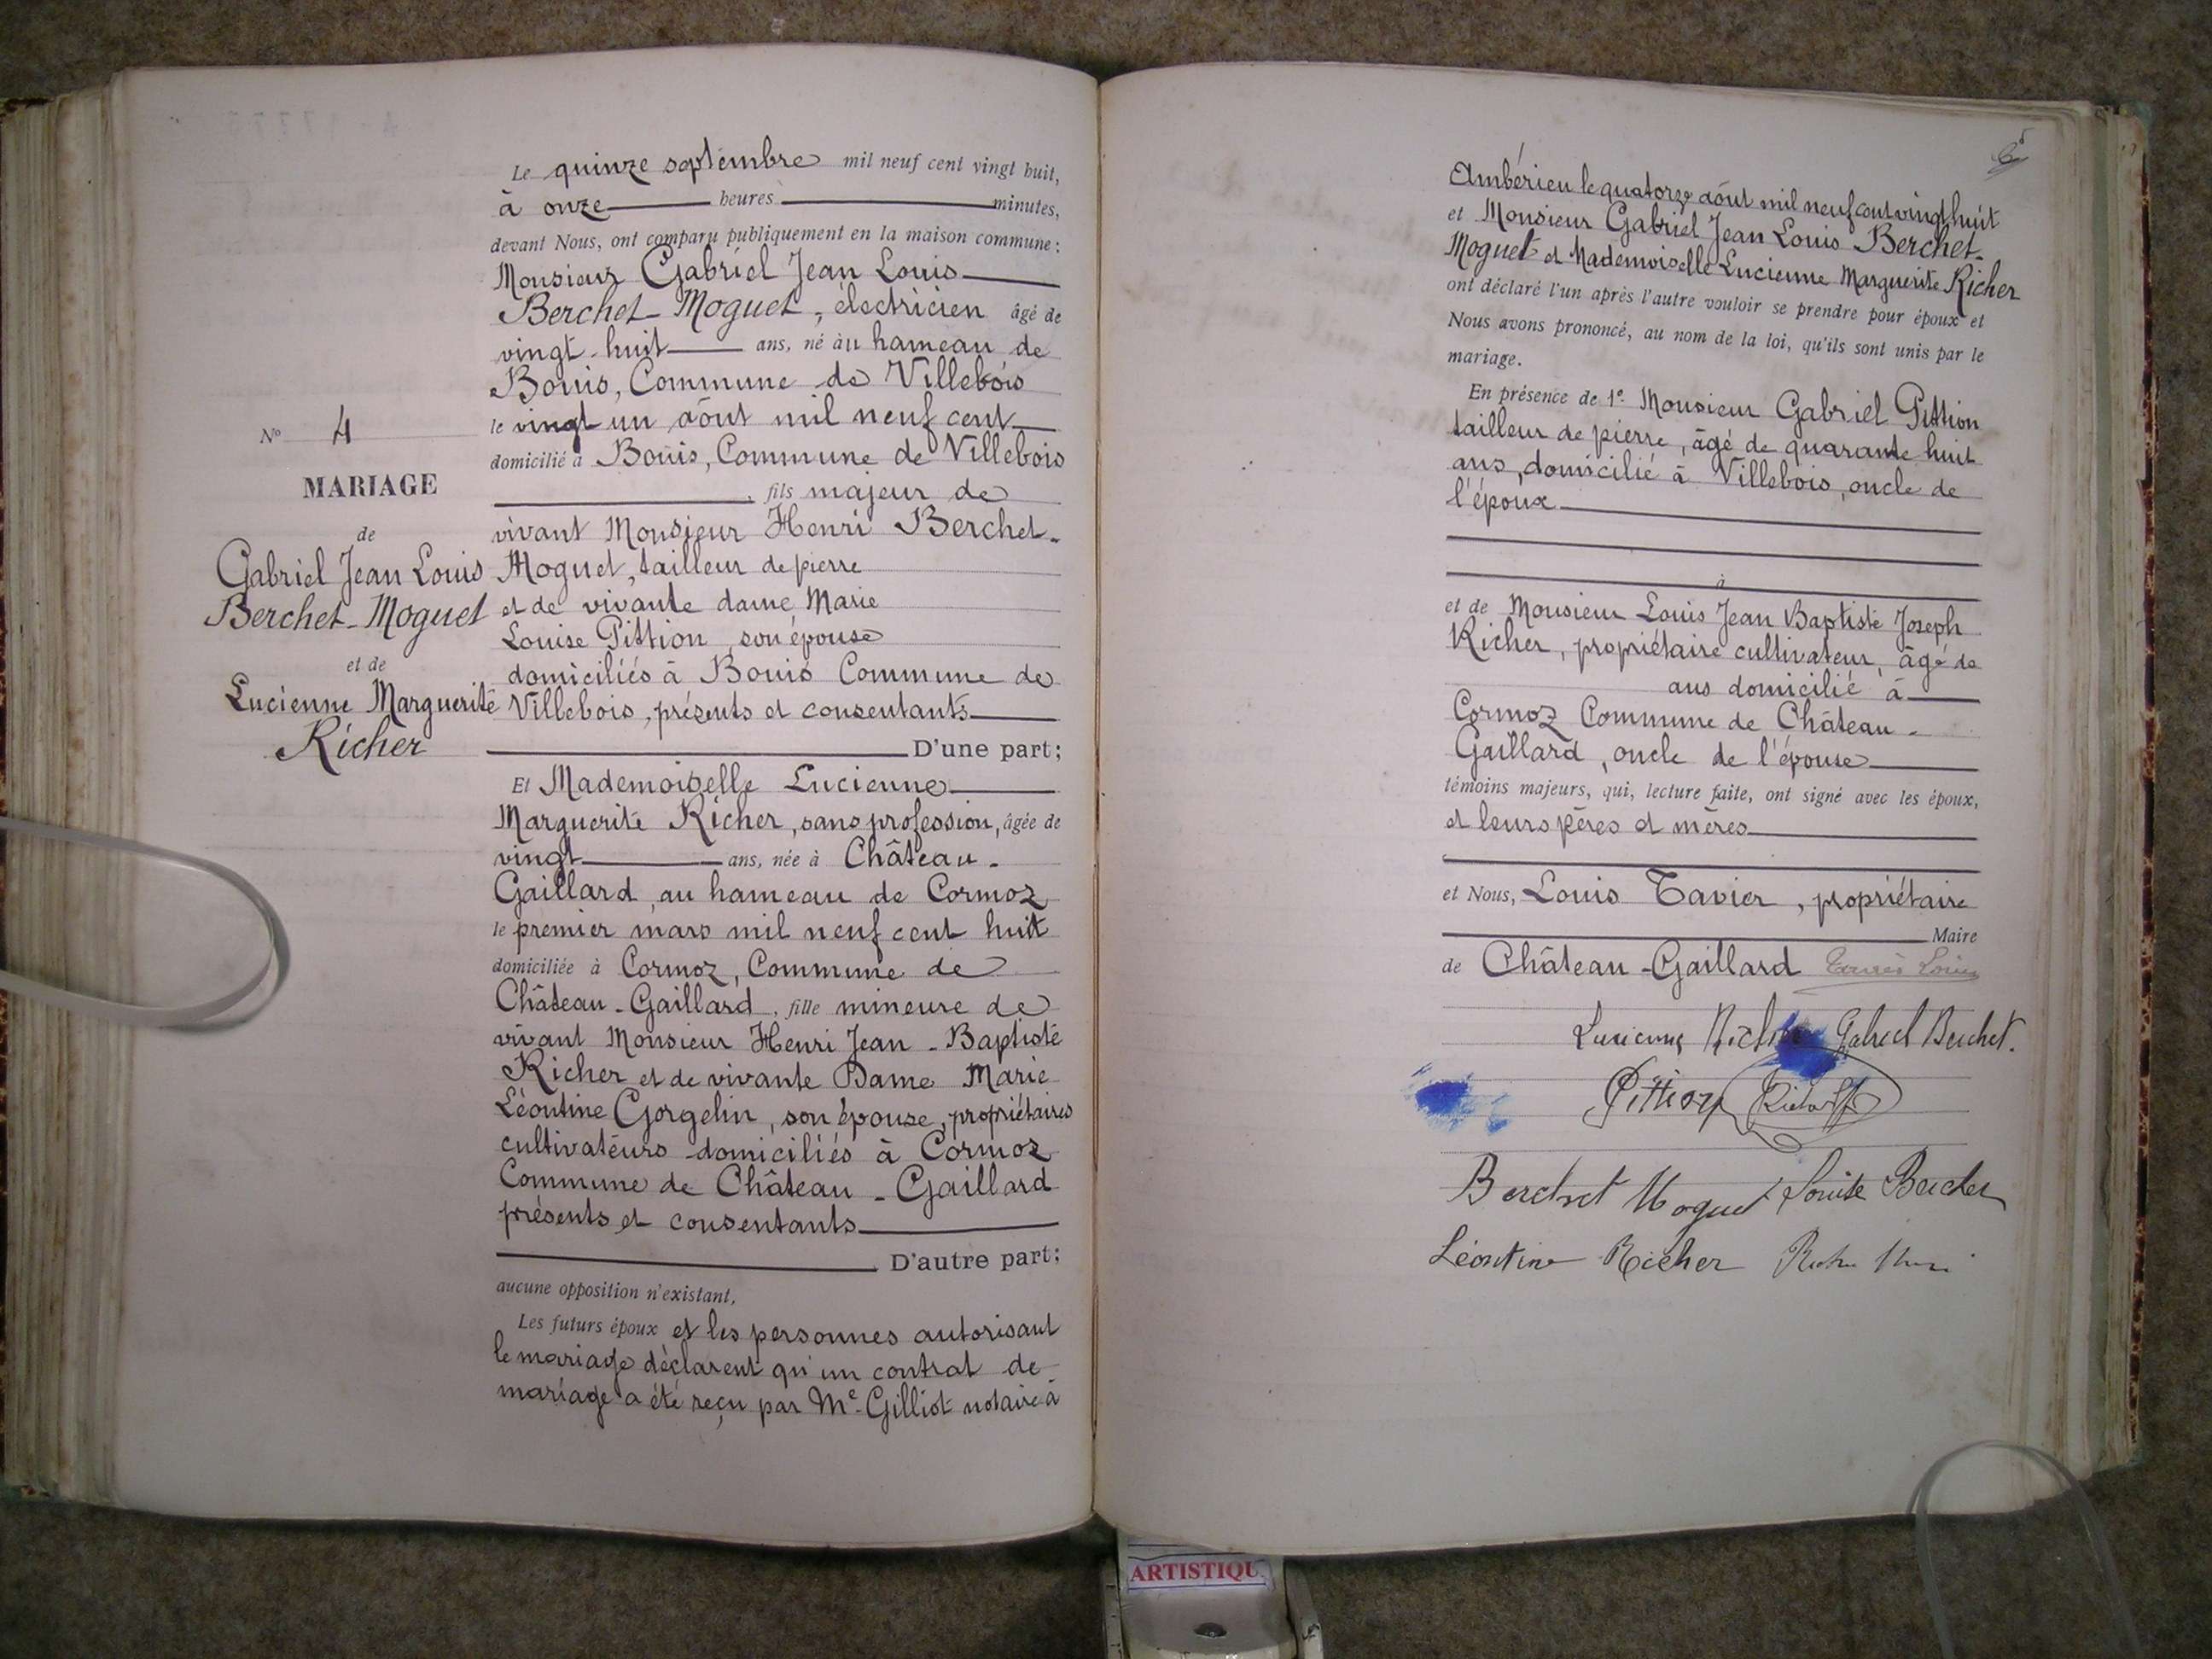 Le quinze septembre mil neuf cent vingt huit,
à onze heures minutes,
devant Nous, ont comparu publiquement en la maison commune :
Monsieur Gabriel Jean Louis
Berchet-Moguet, électricien âgé de
vingt-huit ans, né au hameau de
Bouis, Commune de Villebois
le vingt un août mil neuf cent
domicilié à Bouis, Commune de Villebois
, fils majeur de
vivant Monsieur Henri Berchet-
Moguet, tailleur de pierre
et de vivante dame Marie
Louise Pittion, son épouse
domiciliés à Bouis Commune de
Villebois, présents et consentants
D'une part ;
Et Mademoiselle Lucienne
Marguerite Richer, sans profession, âgée de
vingt ans, née à Château-
Gaillard, au hameau de Cormoz
le premier mars mil neuf cent huit
domiciliée à Cormoz, Commune de
Château-Gaillard, fille mineure de
vivant Monsieur Henri Jean-Baptiste
Richer et de vivante Dame Marie
Léontine Gorgelin, son épouse, propriétaires
cultivateurs domiciliés à Cormoz
Commune de Château-Gaillard
présents et consentants
D'autre part ;
aucune opposition n'existant,
Les futurs époux et les personnes autorisant
le mariage déclarent qu'un contrat de
mariage a été reçu par Me Gilliot notaire à
No 4
MARIAGE
de
Gabriel Jean Louis
Berchet-Moguet
et de
Lucienne Marguerite
Richer
Ambérieu le quatorze août mil neuf cent vingt huit
et Monsieur Gabriel Jean Louis Berchet-
Moguet et Mademoiselle Lucienne Marguerite Richer
ont déclaré l'un après l'autre vouloir se prendre pour époux et
Nous avons prononcé, au nom de la loi, qu'ils sont unis par le
mariage.
En présence de 1º Monsieur Gabriel Pittion
tailleur de pierre, âgé de quarante huit
ans, domicilié à Villebois, oncle de
l'époux
à
et de Monsieur Louis Jean Baptiste Joseph
Richer, propriétaire cultivateur, âgé de
ans domicilié à
Cormoz Commune de Château-
Gaillard, oncle de l'épouse
témoins majeurs, qui, lecture faite, ont signé avec les époux,
et leurs pères et mères
et Nous, Louis Tavier, propriétaire
Maire
de Château-Gaillard Tavier Louis
Lucienne Richer Gabriel Berchet.
Pittion
Berchet Moguet Louise Berchet
Léontine Richer Richer Henri
ARTISTIQU